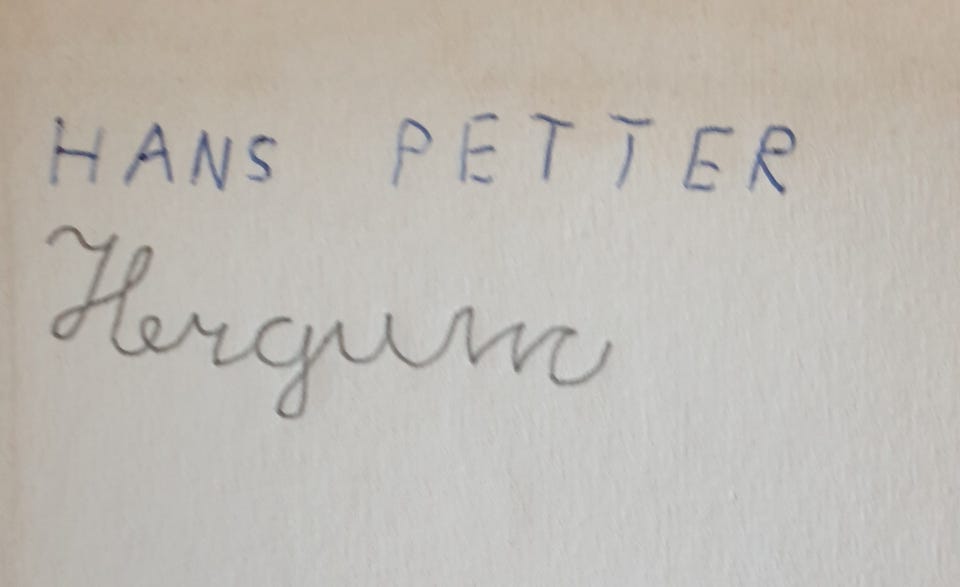 HANS PETTER
Hergum